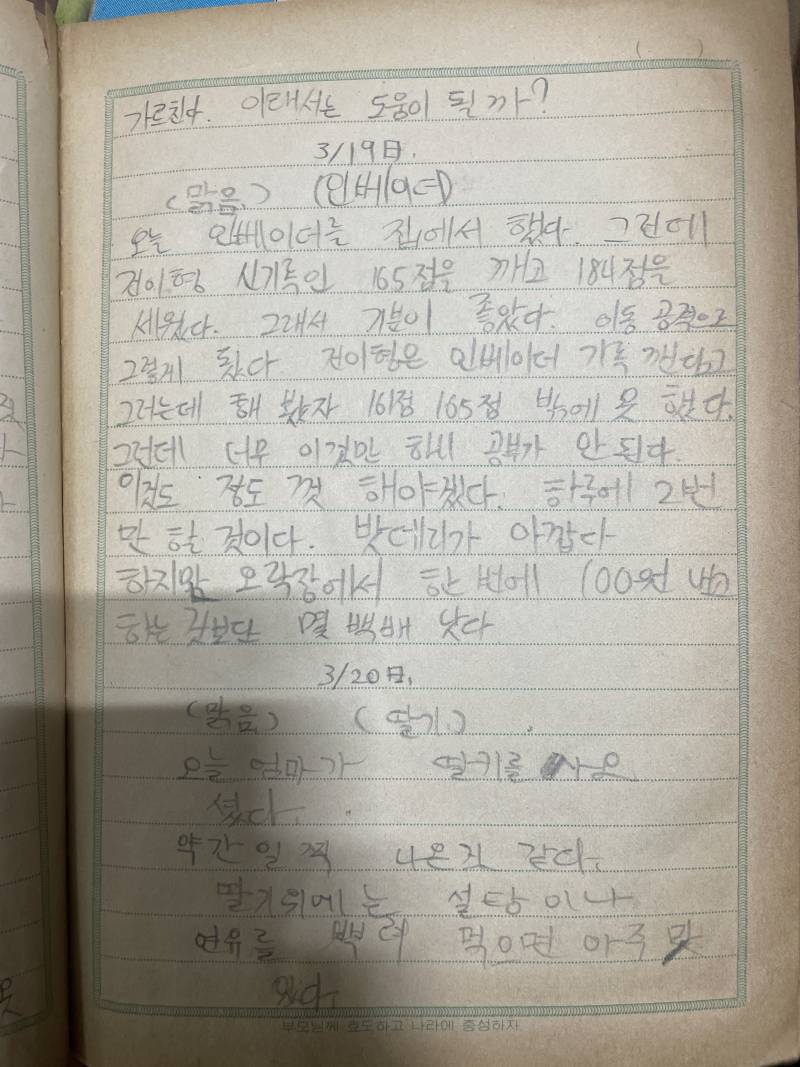 ( )
가르친다. 이래서는 도움이 될까?
3/19日.
(맑음.) (인베이더)
오늘 인베이더를 집에서 했다. 그전에
전이형 신기록인 165점을 깨고 184점을
세웠다. 그래서 기분이 좋았다. 이동 공격으로
그렇게 됬다 전이형은 인베이더 기록 깬다고
그러는데 해 봤자 161점 165점 밖에 못 했다.
그런데 너무 이것만 하니 공부가 안 된다.
이것도 정도 껏 해야겠다. 하루에 2번
만 할 것이다. 밧데리가 아깝다
하지만 오락장에서 한 번에 100원 내고
하는 것보단 몇 백배 낫다
3/20日.
(맑음) (딸기.)
오늘 엄마가 딸기를 사오
셨다.
약간 일찍 나온것 같다.
딸기위에는 설탕이나
연유를 뿌려 먹으면 아주 맛
있다.
부모님께 효도하고 나라에 충성하자